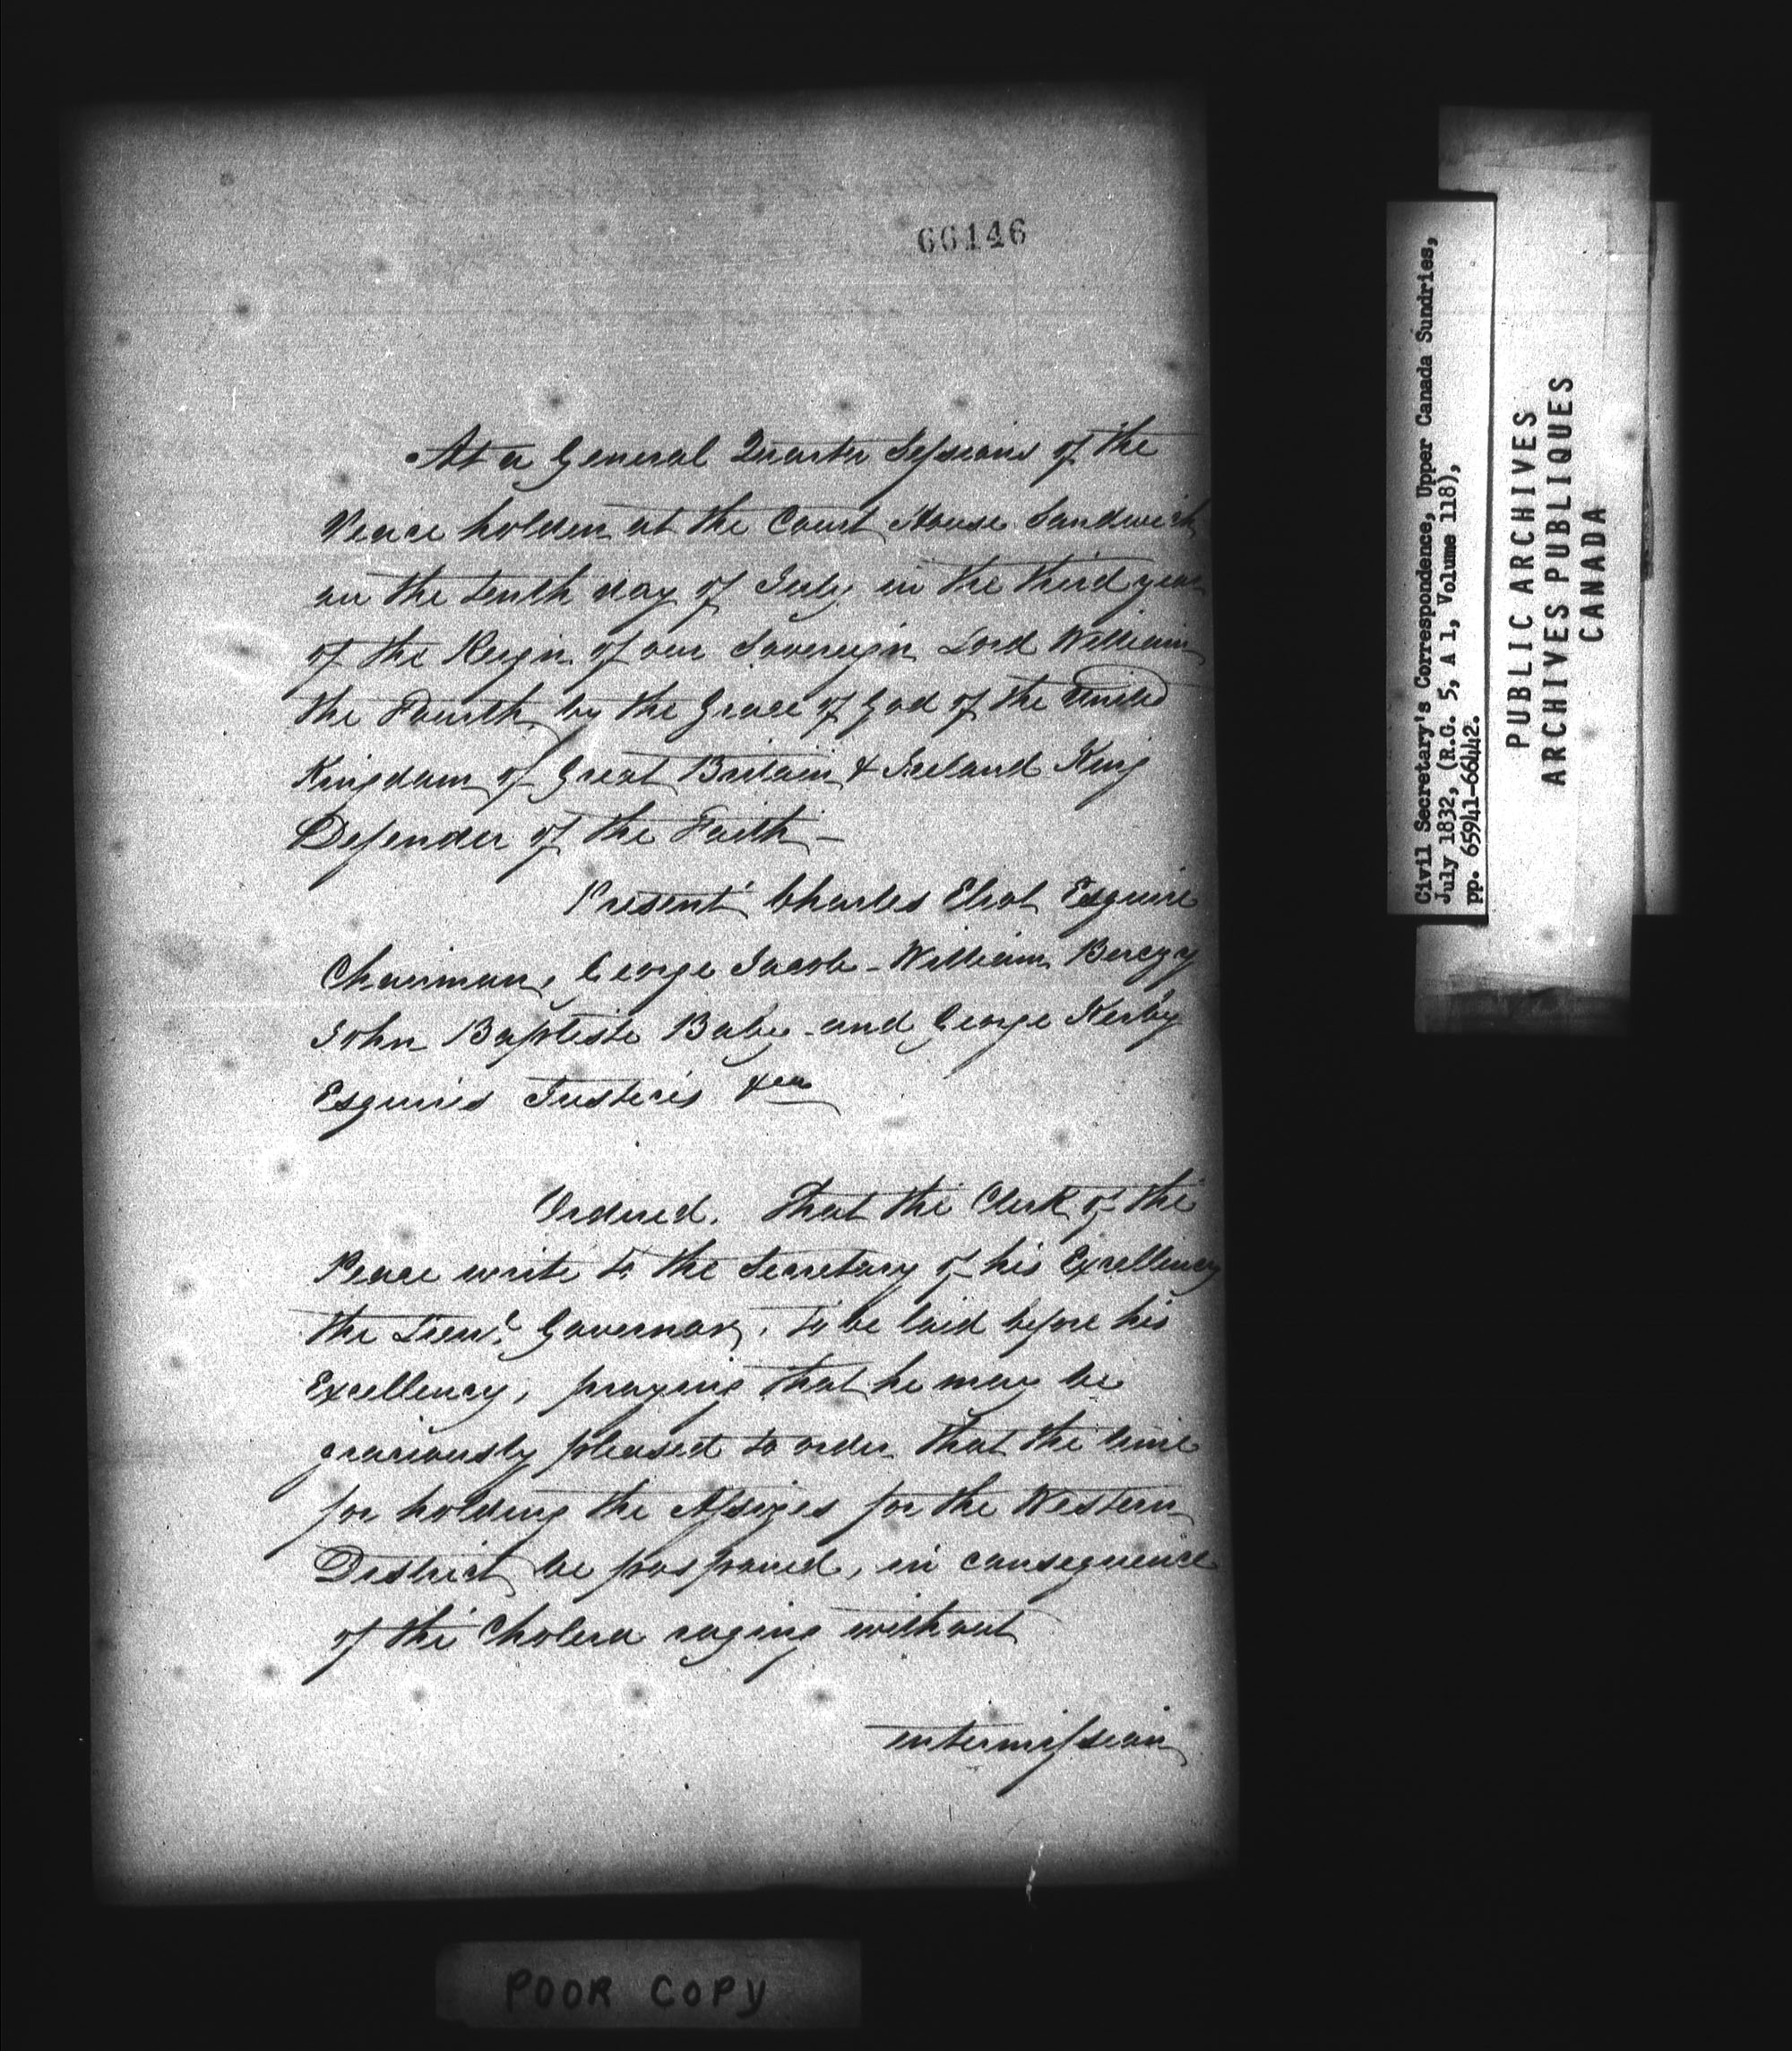 66146
At a General Quarter Sessions of the
Peace holden at the Court House Sandwich
on the tenth day of July in the third year
of the Reign of our Sovereign Lord William
the Fourth by the Grace of God of the United
Kingdom of Great Britain & Ireland King
Defender of the Faith –
Present Charles Eliot Esquire
Chairman, George Jacob – William Berczy
John Baptiste Baby – and George Kerby
Esquires Justices &ca
Ordered. That the Clerk of the
Peace write to the Secretary of his Excellency
the Lieut. Governor, to be laid before his
Excellency, praying that he may be
graciously pleased to order that the time
for holding the Assizes for the Western
District be posponed, in consequence
of the Cholera raging without
intermission
Civil Secretary's Correspondence, Upper Canada Sundries,
July 1832, (R.G. 5, A 1, Volume 118),
pp. 65941-66442.
PUBLIC ARCHIVES
ARCHIVES PUBLIQUES
CANADA
POOR COPY